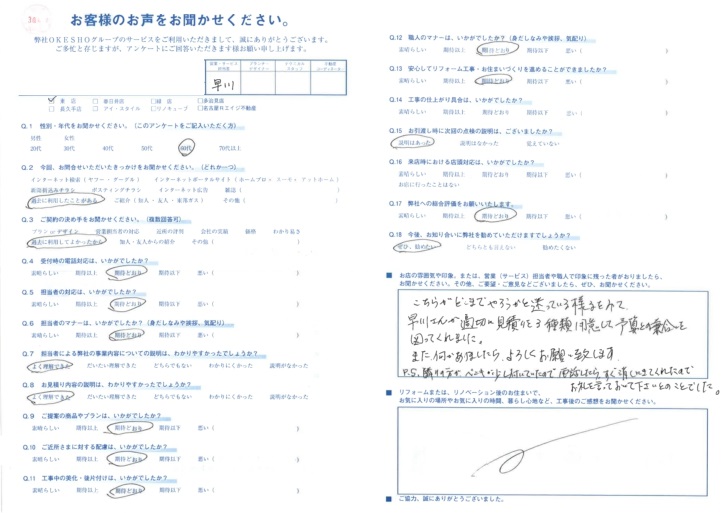 お客様のお声をお聞かせください。
弊社OKESHOグループのサービスをご利用いただきまして、誠にありがとうございます。
ご多忙と存じますが、アンケートにご回答いただきます様お願い申し上げます。
早川
東店 春日井店 緑店 多治見店
長久手店 アイ・スタイル リノキューブ 名古屋Rエイジ不動産
Q.1 性別・年代をお聞かせください。(このアンケートをご記入いただく方)
男性 女性
20代 30代 40代 50代 60代 70代以上
Q.2 今回、お問合せいただいたきっかけをお聞かせください。(どれか一つ)
インターネット検索(ヤフー・グーグル) インターネットポータルサイト(ホームプロ・スーモ・アットホーム)
新聞折込みチラシ ポスティングチラシ インターネット広告 雑誌( )
過去に利用したことがある ご紹介(知人・友人・東邦ガス) その他( )
Q.3 ご契約の決め手をお聞かせください。(複数回答可)
プラン or デザイン 営業担当者の対応 近所の評判 会社の実績 価格 わかり易さ
過去に利用してよかったから 知人・友人からの紹介 その他( )
Q.4 受付時の電話対応は、いかがでしたか?
素晴らしい 期待以上 期待どおり 期待以下 悪い( )
Q.5 担当者の対応は、いかがでしたか?
素晴らしい 期待以上 期待どおり 期待以下 悪い( )
Q.6 担当者のマナーは、いかがでしたか?(身だしなみや挨拶、気配り)
素晴らしい 期待以上 期待どおり 期待以下 悪い( )
Q.7 担当者による弊社の事業内容についての説明は、わかりやすかったでしょうか?
よく理解できた だいたい理解できた どちらでもない わかりにくかった 説明がなかった
Q.8 お見積り内容の説明は、わかりやすかったでしょうか?
よく理解できた だいたい理解できた どちらでもない わかりにくかった 説明がなかった
Q.9 ご提案の商品やプランは、いかがでしたか?
素晴らしい 期待以上 期待どおり 期待以下 悪い( )
Q.10 ご近所さまに対する配慮は、いかがでしたか?
素晴らしい 期待以上 期待どおり 期待以下 悪い( )
Q.11 工事中の美化・後片付けは、いかがでしたか?
素晴らしい 期待以上 期待どおり 期待以下 悪い( )
Q.12 職人のマナーは、いかがでしたか?(身だしなみや挨拶、気配り)
素晴らしい 期待以上 期待どおり 期待以下 悪い( )
Q.13 安心してリフォーム工事・お住まいづくりを進めることができましたか?
素晴らしい 期待以上 期待どおり 期待以下 悪い( )
Q.14 工事の仕上がり具合は、いかがでしたか?
素晴らしい 期待以上 期待どおり 期待以下 悪い( )
Q.15 お引渡し時に次回の点検の説明は、ございましたか?
説明はあった 説明はなかった 覚えていない
Q.16 来店時における店頭対応は、いかがでしたか?
素晴らしい 期待以上 期待どおり 期待以下 悪い( )
お店に行ったことはない
Q.17 弊社への総合評価をお願いいたします。
素晴らしい 期待以上 期待どおり 期待以下 悪い( )
Q.18 今後、お知り合いに弊社を勧めていただけますでしょうか?
ぜひ、勧めたい どちらとも言えない 勧めたくない
■ お店の雰囲気や印象、または、営業(サービス)担当者や職人で印象に残った者がおりましたら、
お聞かせください。その他、ご要望・ご意見などございましたら、ぜひ、お聞かせください。
こちらがどこまでやろうかと迷っている様子をみて
早川さんが適切な見積りを3種類用意して予算との兼合いを
図ってくれました。
また、何かありましたら、よろしくお願い致します。
P.S. 隣りの方がペンキが少し付いていたので 連絡したらすぐ消しにきてくれたので
お礼を言っておいて下さいとのことでした。
■ リフォームまたは、リノベーション後のお住まいで、
お気に入りの場所やお気に入りの時間、暮らし心地など、工事後のご感想をお聞かせください。
■ ご協力、誠にありがとうございました。